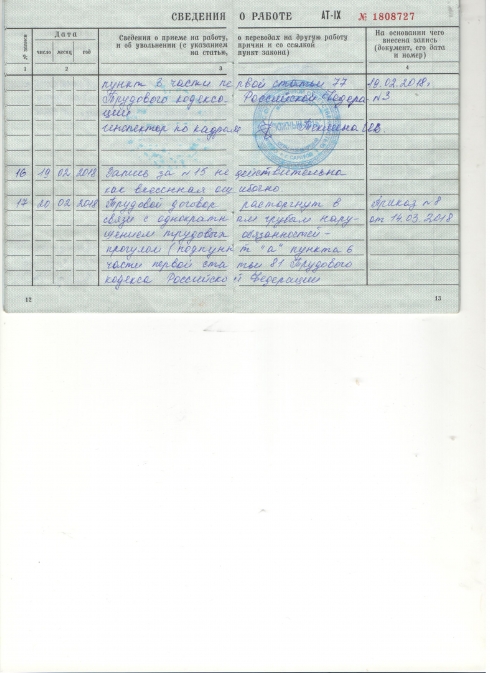 СВЕДЕНИЯ О РАБОТЕ АТ-IX № 1808727
№ записи
Дата
Сведения о приеме на работу, о переводах на другую работу
и об увольнении (с указанием причин и со ссылкой
на статью, пункт закона)
На основании чего
внесена запись
(документ, его дата
и номер)
число месяц год
1 2 3 4
пункт 3 части первой статьи 77 19.02.2018г
Трудового кодекса Российской Федера- №3
ции
инспектор по кадрам
16 19 02 2018 Запись за №15 не действительна
как внесенная ошибочно.
17 20 02 2018 Трудовой договор расторгнут в Приказ №8
связи с однократным грубым нару- от 14.03.2018
шением трудовых обязанностей -
прогулом (подпункт "а" пункта 6
части первой статьи 81 Трудового
кодекса Российской Федерации
12 13